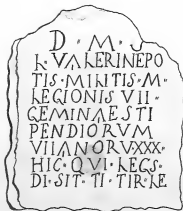 D · M · S
R · VALERI NEPO
TIS · MILITIS · M ·
LEGIONIS VII ·
GEMINAE STI
PENDIORVM
VII ANORV · XXX ·
HIC · QVI · REGS ·
DI · SIT · TI · TIR · LE